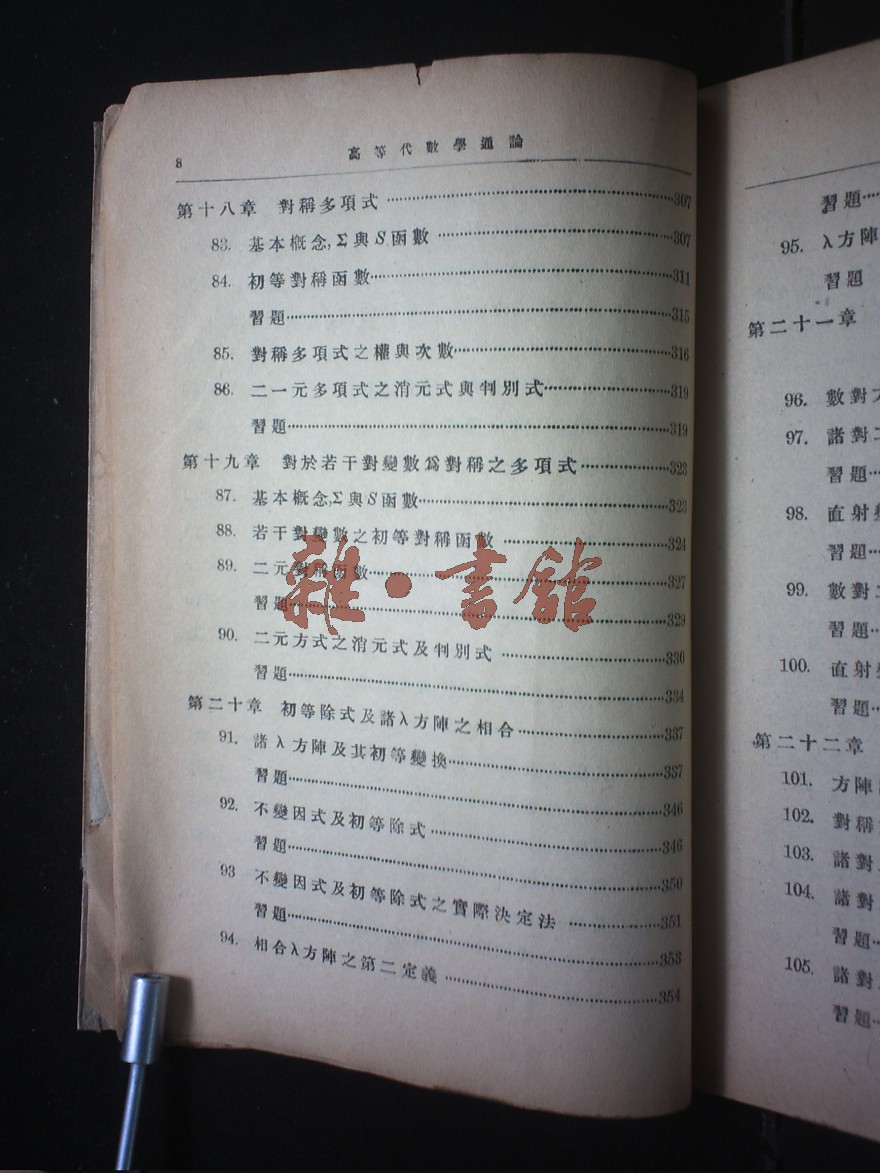 8 高等代數學通論
第十八章 對稱多項式 ……307
83. 基本概念,Σ與S函數 ……307
84. 初等對稱函數……311
習題……315
85. 對稱多項式之權與次數……316
86. 二一元多項式之消元式與判別式……319
習題……319
第十九章 對於若干對變數爲對稱之多項式……323
87. 基本概念,Σ與S函數……323
88. 若干對變數之初等對稱函數 ……324
89. 二元對稱函數……327
習題……329
90. 二元方式之消元式及判別式 ……330
習題……334
第二十章 初等除式及諸λ方陣之相合……337
91. 諸λ方陣及其初等變換……337
習題……346
92. 不變因式及初等除式……346
習題……350
93 不變因式及初等除式之實際決定法 ……351
習題……353
94. 相合λ方陣之第二定義 ……354
雜·書館
習題…
95. λ方陣
習題
第二十一章
96. 數對
97. 諸對
習題…
98. 直射
習題…
99. 數對
習題…
100. 直射
習題…
第二十二章
101. 方陣
102. 對稱
103. 諸對
104. 諸對
習題…
105. 諸對
習題…